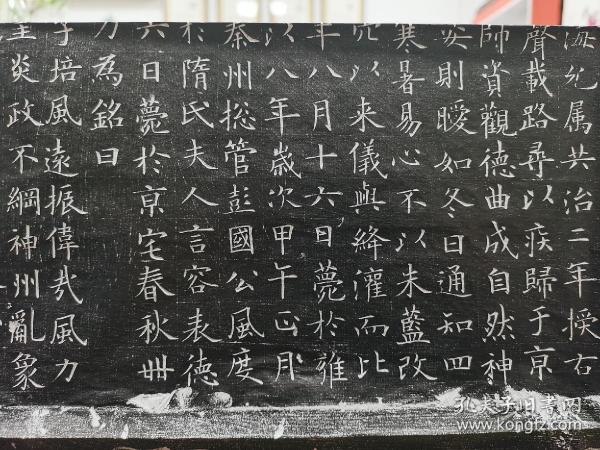 允属共治二年授右
聲載路尋以疾歸于京
師資觀德曲成自然神
則曖如冬日通知四
寒暑易心不以朱藍改
以来儀與絳灌而比
年八月十六日薨於雍
以八年歲次甲午正月
秦州揔管彭國公風度
於隋氏夫人言容表德
六日薨於京宅春秋卌
乃為銘曰
子培風遠振偉哉風力
炎政不綱神州亂象
孔夫子旧书网
www.kongfz.com